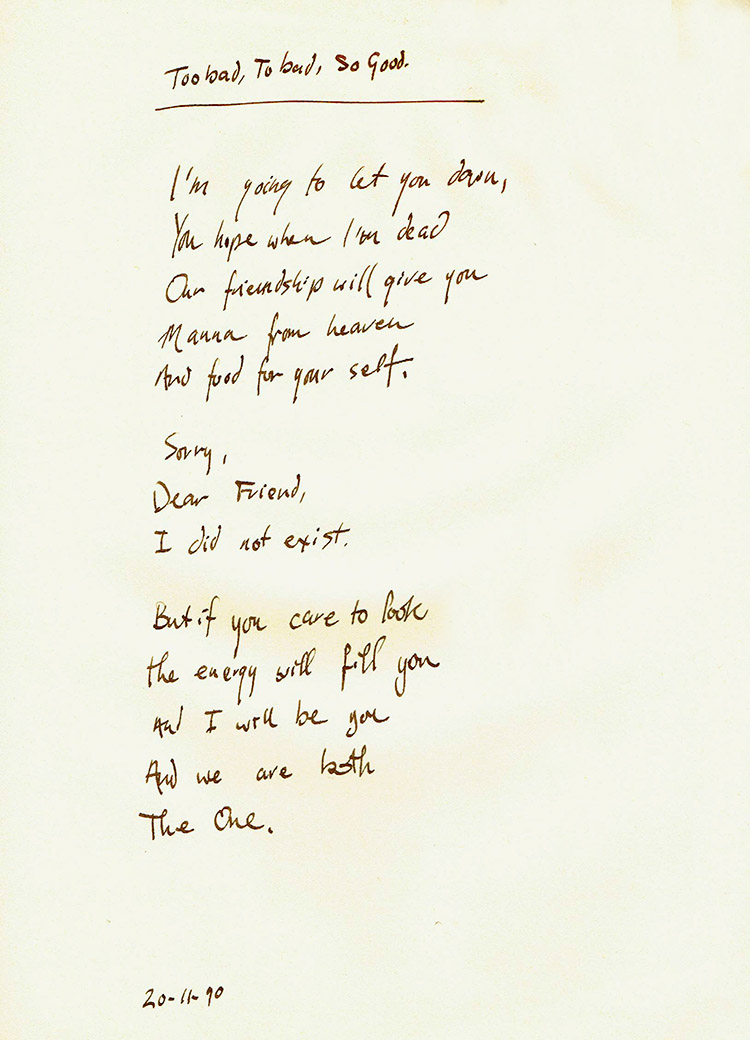 Too bad, To bad, So Good.
I'm going to let you down,
You hope when I'm dead
Our friendship will give you
Manna from heaven
And food for your self.
Sorry,
Dear Friend,
I did not exist.
But if you care to look
the energy will fill you
And I will be you
And we are both
The One.
20-11-90